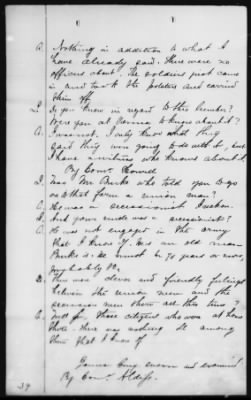 A. Nothing in addition to what I
have already said. There were no
officers about. The soldiers just came
in and took the potatoes and carried
them off.
Q. Do you know in regard to the lumber?
Were you at home to know about it?
A. I was not. I only know what they
said they were going to do with it, but
I have a witness who knows about it.
By Comr Howell
Q. Was Mr Burke who told you to go
on that farm a union man?
A. He was a secessionist I reckon.
Q. And your uncle was a secessionist?
A. He was not engaged in the army
that I know of. Was an old man
Burke is. He cannot be 70 years or over,
probably 80.
Q. There was close and friendly feelings
between the union men and the
secession men there all this time?
A. Well for those citizens who was at home
there. There was nothing at among
them that I know of
James sworn and examined
By Comr Aldis.
39